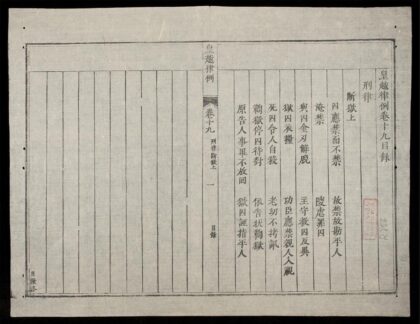 皇越律例卷十九目錄
刑律
斷獄上
囚應禁而不禁　故禁故勘平人
淹禁　陵虐罪囚
與囚金刃解脫　主守教囚反異
獄囚衣糧　功臣應禁親人入視
死囚令人自殺　老幼不拷訊
鞫獄停囚待對　依告狀鞫獄
原告人事畢不放回　獄囚誣指平人
皇越律例　卷十九　刑律斷獄上　一　目錄